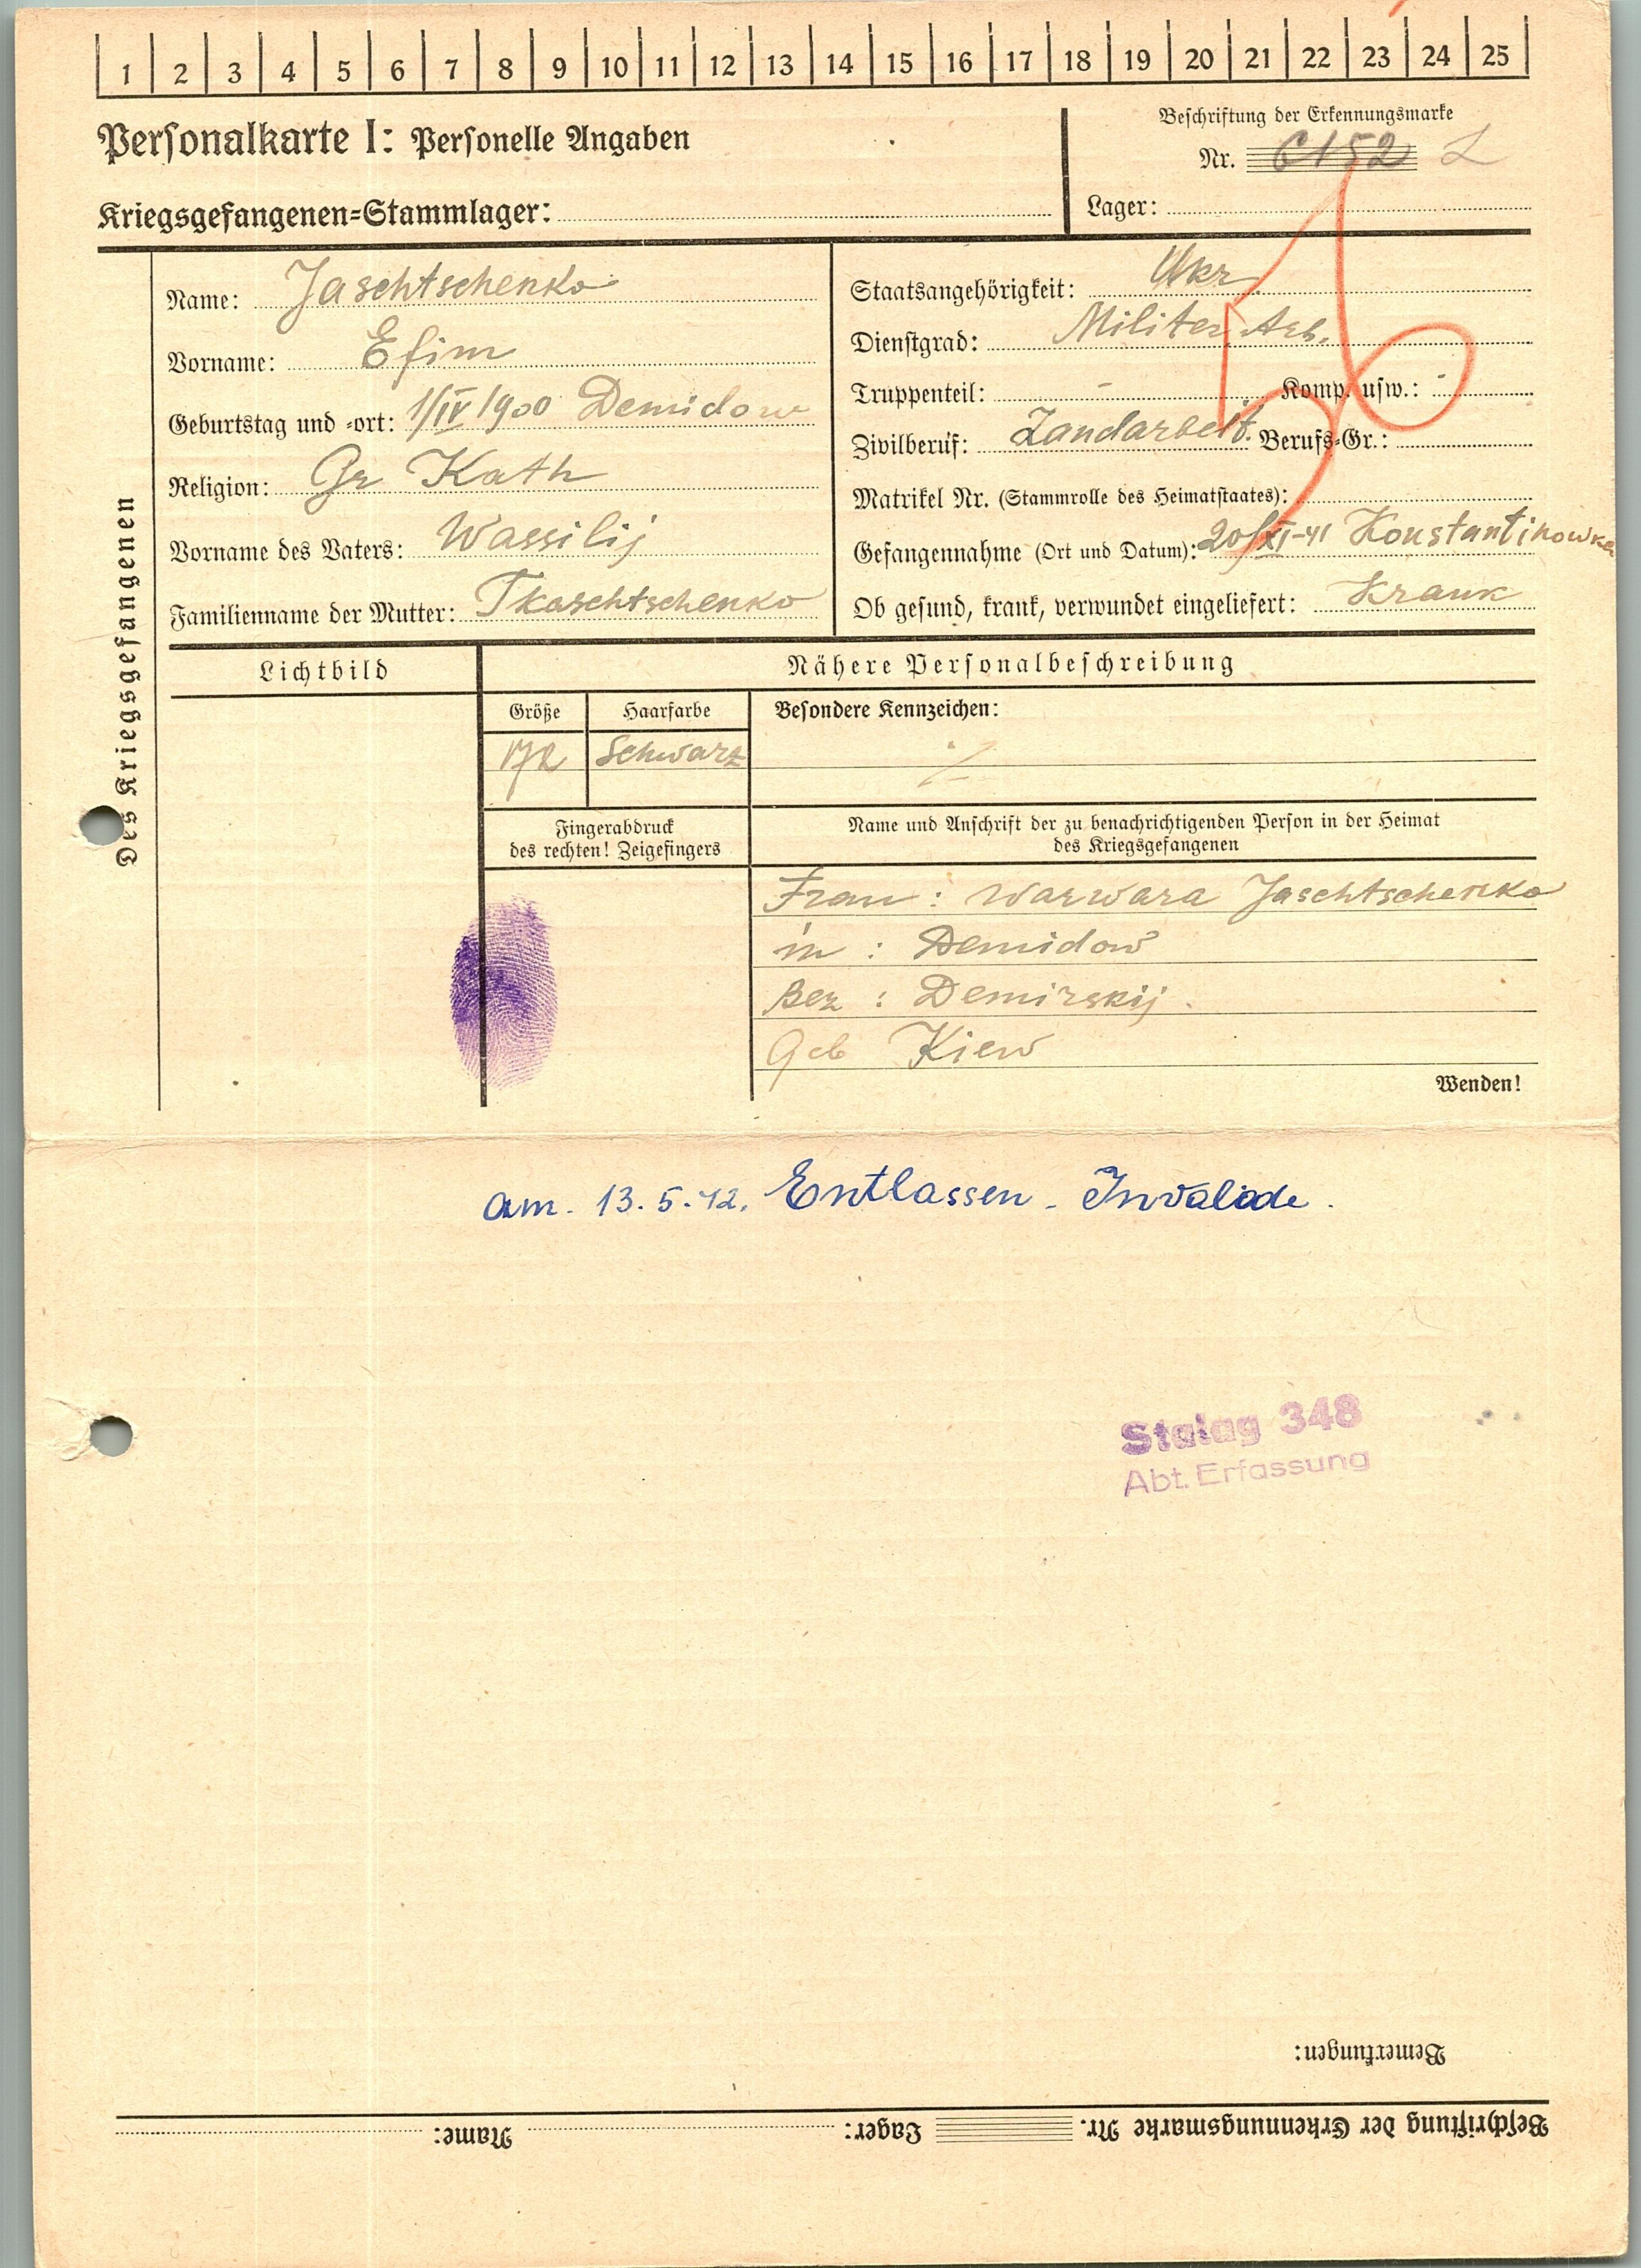 1 2 3 4 5 6 7 8 9 10 11 12 13 14 15 16 17 18 19 20 21 22 23 24 25
Personalkarte I: Personelle Angaben
Beschriftung der Erkennungsmarke
Nr. 6152 L
Kriegsgefangenen=Stammlager:
Lager:
Des Kriegsgefangenen
Name: Jaschtschenko
Vorname: Efim
Geburtstag und =ort: 1/IV 1900 Demidow
Religion: Gr Kath
Vorname des Vaters: Wassilij
Familienname der Mutter: Tkaschtschenko
Staatsangehörigkeit: Ukr
Dienstgrad: Militer Arb.
Truppenteil: - Komp. usw.: -
Zivilberuf: Landarbeit. Berufs=Gr.:
Matrikel Nr. (Stammrolle des Heimatstaates):
Gefangennahme (Ort und Datum): 20/XI-41 Konstantinowka
Ob gesund, krank, verwundet eingeliefert: Krank
Lichtbild
Nähere Personalbeschreibung
Größe Haarfarbe Besondere Kennzeichen:
172 Schwarz
Fingerabdruck
des rechten! Zeigefingers
Name und Anschrift der zu benachrichtigenden Person in der Heimat
des Kriegsgefangenen
Frau: Warwara Jaschtschenko
in: Demidow
Bez: Demirskij.
Geb Kiew
Wenden!
am. 13.5.42. Entlassen - Invalide.
Stalag 348
Abt. Erfassung
Bemerkungen:
Beschriftung der Erkennungsmarke Nr. Lager: Name: